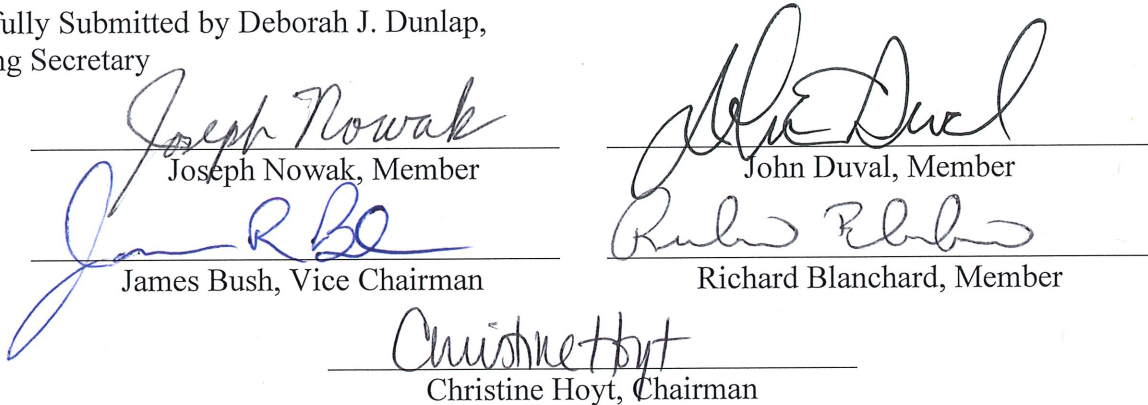 fully Submitted by Deborah J. Dunlap,
ng Secretary
Joseph Nowak
Joseph Nowak, Member
John Duval
John Duval, Member
James R Bush
James Bush, Vice Chairman
Richard Blanchard
Richard Blanchard, Member
Christine Hoyt
Christine Hoyt, Chairman